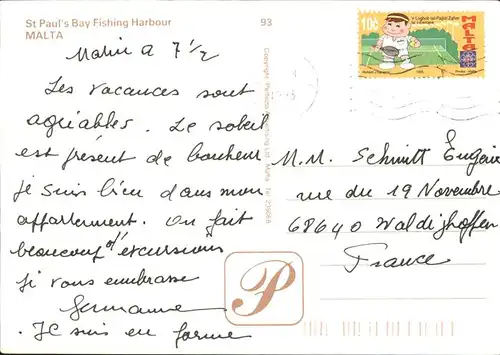 St Paul's Bay Fishing Harbour
MALTA
93
Les vacances sont
agréables. Le soleil
est présent de bonheur
je suis bien dans mon
appartement. On fait
beaucoup d'excursions
Je vous embrasse
Germaine
. Je suis en forme
P
10c
MALTA
M.M. Schmitt Eugène
rue du 19 Novembre
68640 Waldighoffen
France